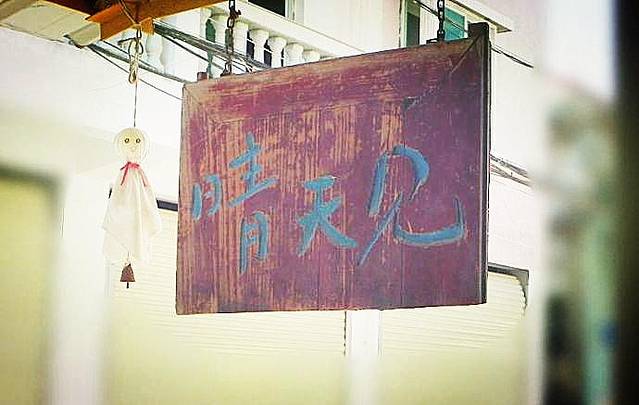 晴天见